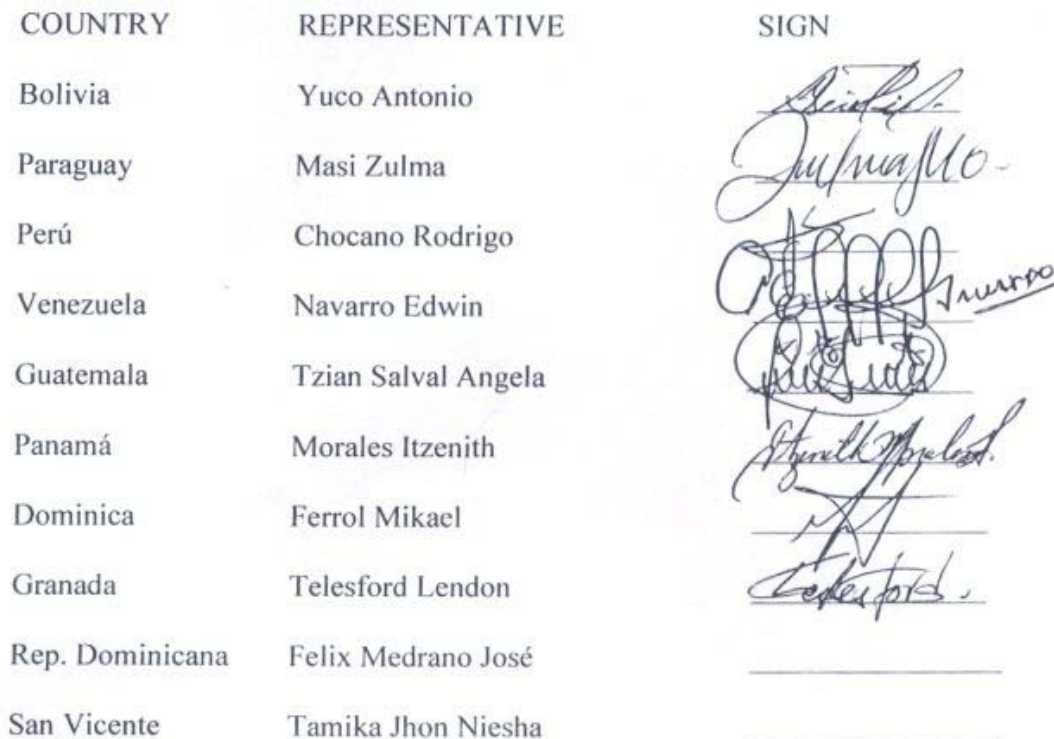 COUNTRY REPRESENTATIVE SIGN
Bolivia Yuco Antonio
Paraguay Masi Zulma
Perú Chocano Rodrigo
Venezuela Navarro Edwin
Guatemala Tzian Salval Angela
Panamá Morales Itzenith Itzenith Morales
Dominica Ferrol Mikael
Granada Telesford Lendon Telesford.
Rep. Dominicana Felix Medrano José
San Vicente Tamika Jhon Niesha